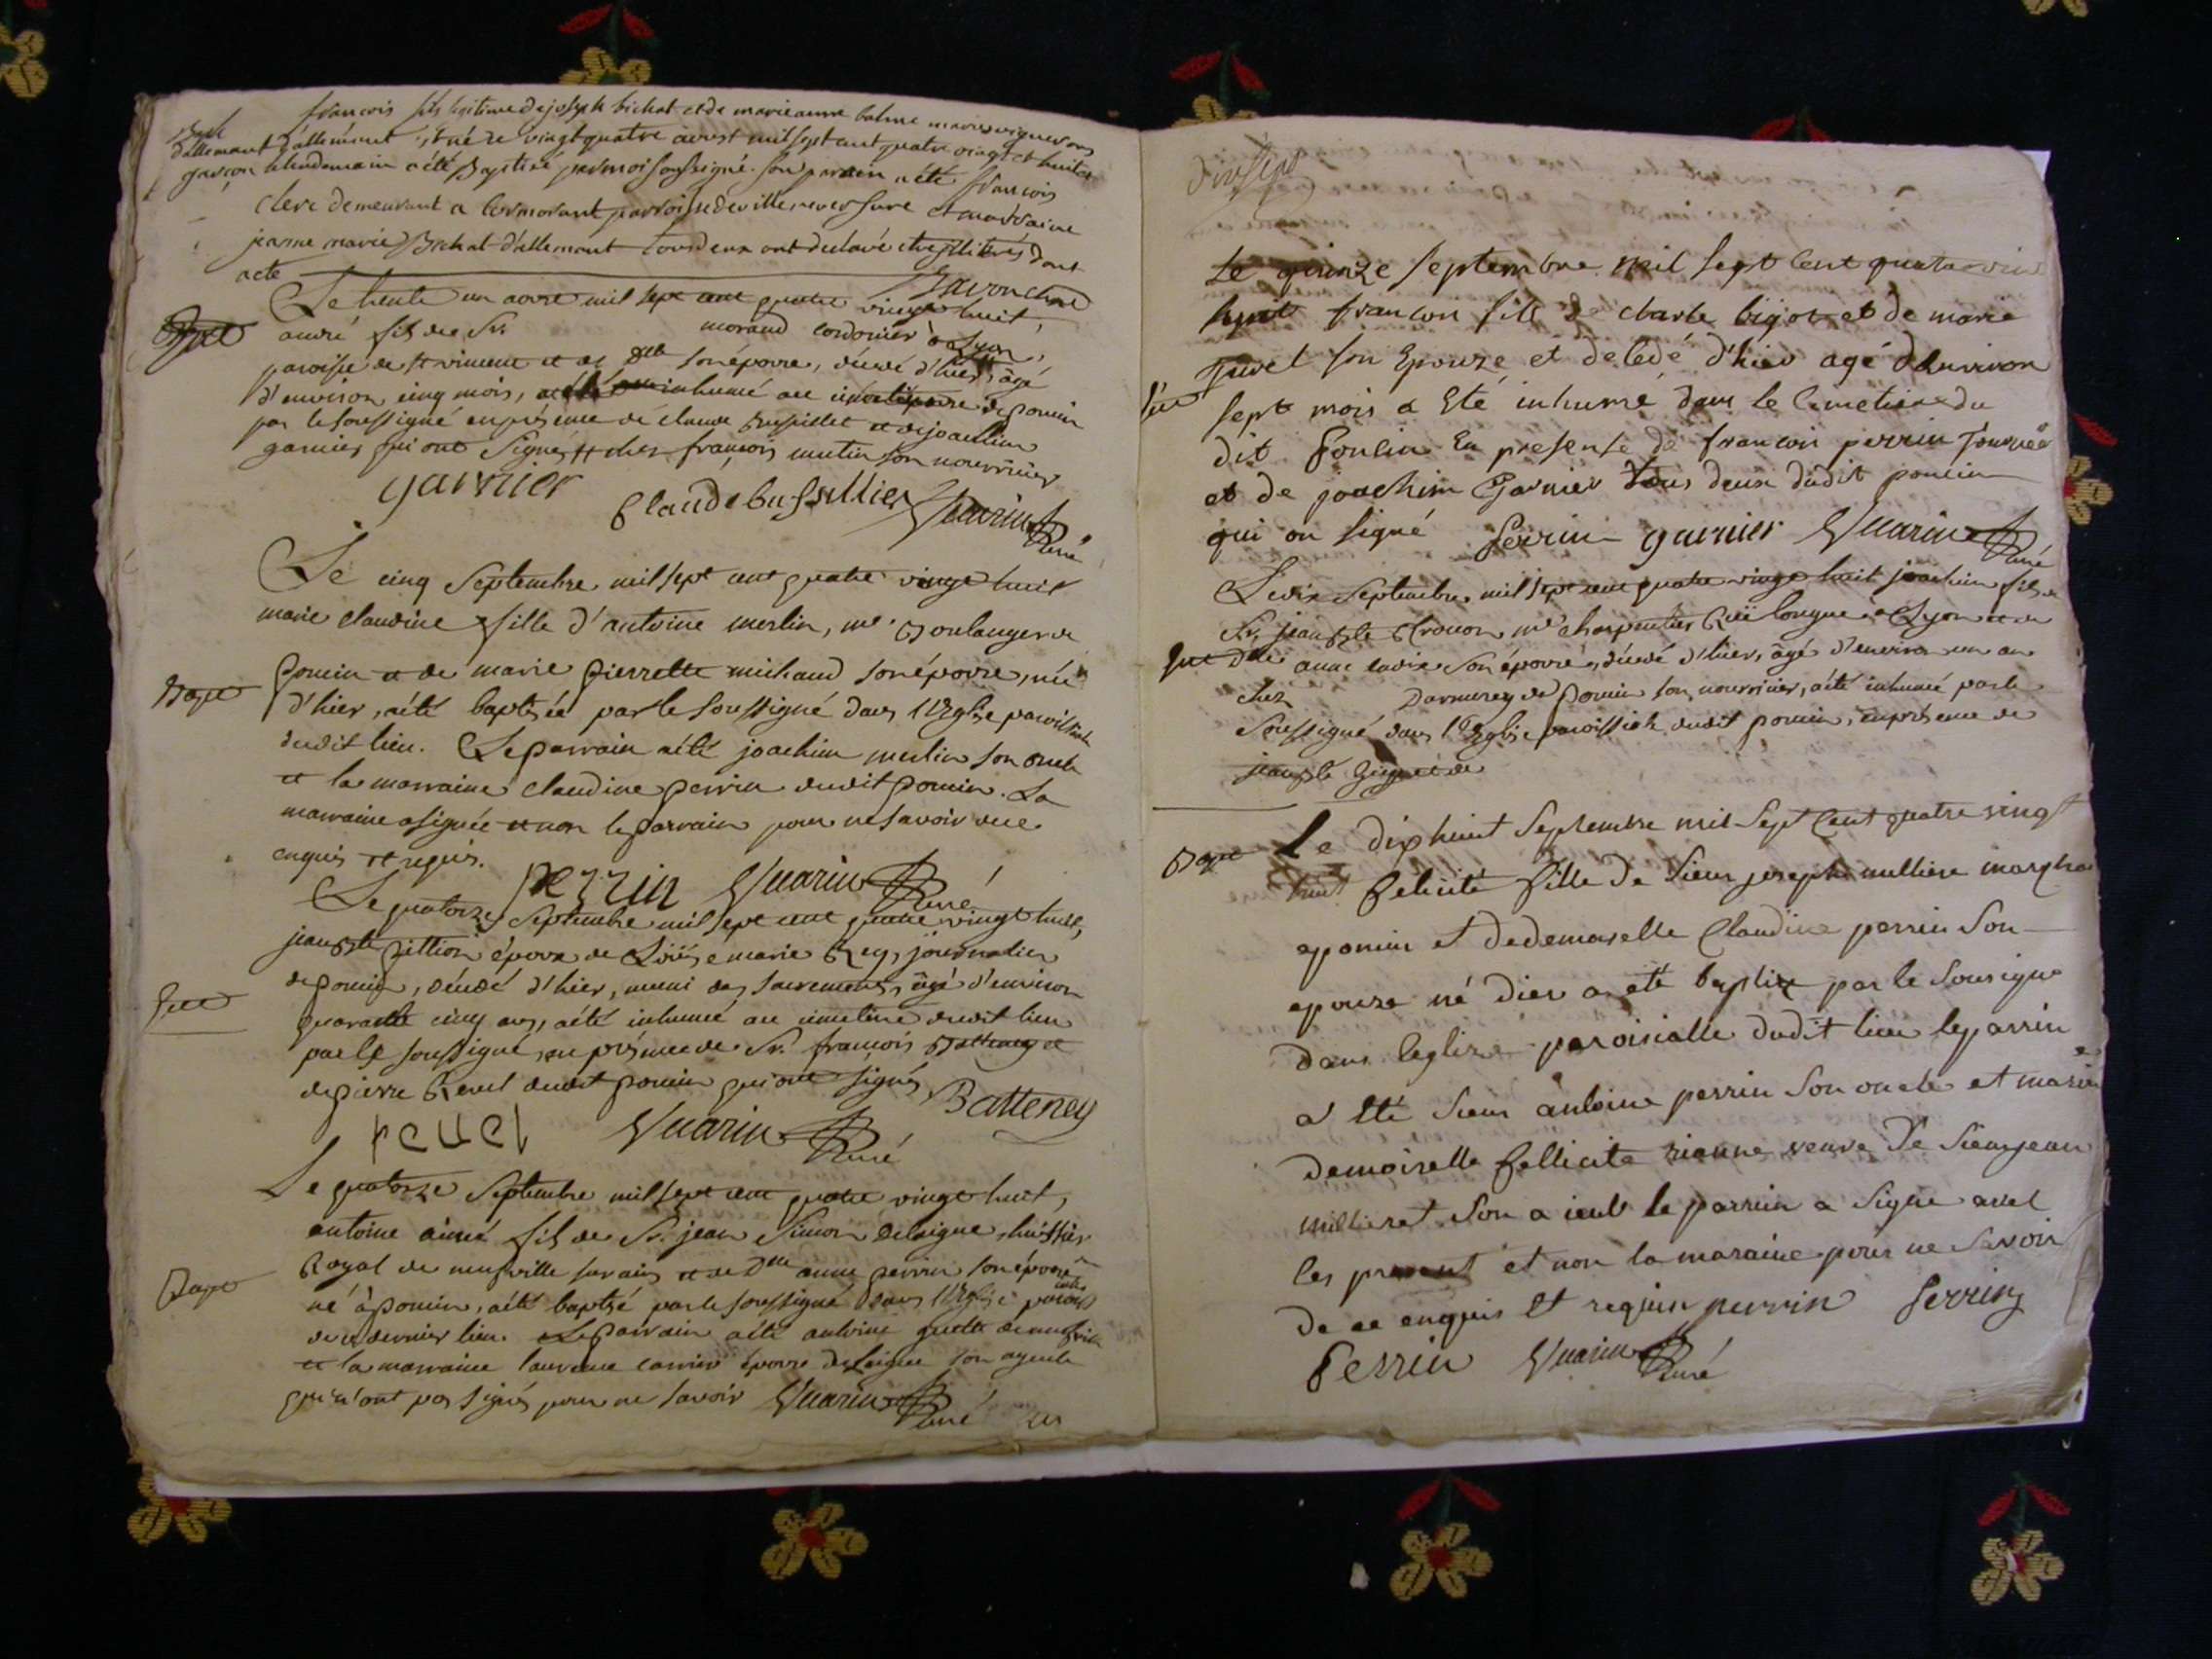 françois fils legitime de joseph bichat et de marie anne balme mariés vignerons
Bapt
d'allemant d'allemant est né le vingt quatre aoust mil sept cent quatre vingt et huit et
garçon le lendemain a été Baptisé par moi soussigné. son parain a été françois
clerc demeurant a cormorant parroisse de villereversure et marraine
jeanne marie Bichat d'allemant tous deux ont déclaré être illitérés dont
acte
Le trente un aoust mil sept cent quatre vingt huit,
andré fils de Sr. morand cordonier à Lyon,
paroisse de st vincent et de dlle son épouse, décédé d'hier, âgé
d'environ cinq mois, a été inhumé au cimetiere de poncin
par le soussigné en présence de claude bussillet et de joachim
garnier qui ont signé, chez françois mutin son nourricier
garnier
Claude bussillier Guarin Curé
Le cinq Septembre mil sept cent quatre vingt huit
marie claudine fille d'antoine merlin, me. Boulanger de
Bapt
poncin et de marie pierrette michaud son épouse, née
d'hier, a été baptisée par le soussigné dans l'Eglise paroissiale
dudit lieu. Le parrain a été joachim merlin son oncle
et la marraine claudine perrin dudit poncin. La
marraine a signée et non le parrain pour ne savoir de ce
enquis et requis.
perrin Guarin Curé
Le quatorze Septembre mil sept cent quatre vingt huit,
jean Bte pittion époux de Loüise marie Rey, journalier
de poncin, décédé d'hier, muni des sacrements, âgé d'environ
quarante cinq ans, a été inhumé au cimetiere dudit lieu
par le soussigné, en présence de Sr. françois Batteney et
de pierre Revel dudit poncin qui ont signés
Batteney
revel Guarin Curé
Le quatorze Septembre mil sept cent quatre vingt huit,
antoine aimé fils de Sr. jean Simon Delaigue, huissier
Royal de neufville sur ain et de Dlle anne perrin son épouse
Bapt
né à poncin, a été baptisé par le soussigné dans l'Eglise paroissiale
de ce dernier lieu. Le parrain a été antoine de neufville
et la marraine épouse Delaigue son ayeule
qui n'ont pas signés pour ne savoir Guarin Curé
dix sept
Le quinze septembre mil sept cent quatre vint
huit francon fils de charle bigot et de marie
juvel son Epouze et décédé d'hier agé d'environ
sept mois a Eté inhumé dans le Cimetiere du
dit Poncin En presense de francoin perrin
et de joachim Garnier tous deux dudit poncin
qui on signé Perrin garnier Guarin Curé
Le dix septembre mil sept cent quatre vingt huit joachim fils de
Sr. jean Bte me charpentier Ruë longue a Lyon et de
Dlle anne son épouse, décédé d'hier, âgé d'environ un an
chez Darmerey de poncin son nourricier, a été inhumé par le
Soussigné dans l'Eglise paroissiale dudit poncin, en présence de
jean Bte et de
Bapt
Le dix huit Septembre mil Sept Cent quatre vingt
huit Felicité fille de Sieur joseph millieret
a poncin et de demaselle Claudine perrin Son
epouze né dier a été baptize par le Sousigne
dans leglize paroisialle dudit lieu le parrin
a Eté Sieur antoine perrin Son oncle et marine
demoiselle fellicite veuve De Sieur jean
millieret Son a ieule le parrin a Signe avec
les present et non la maraine pour ne Savoir
de ce enquis Et requin perrin Perrin
Perrin Guarin Curé